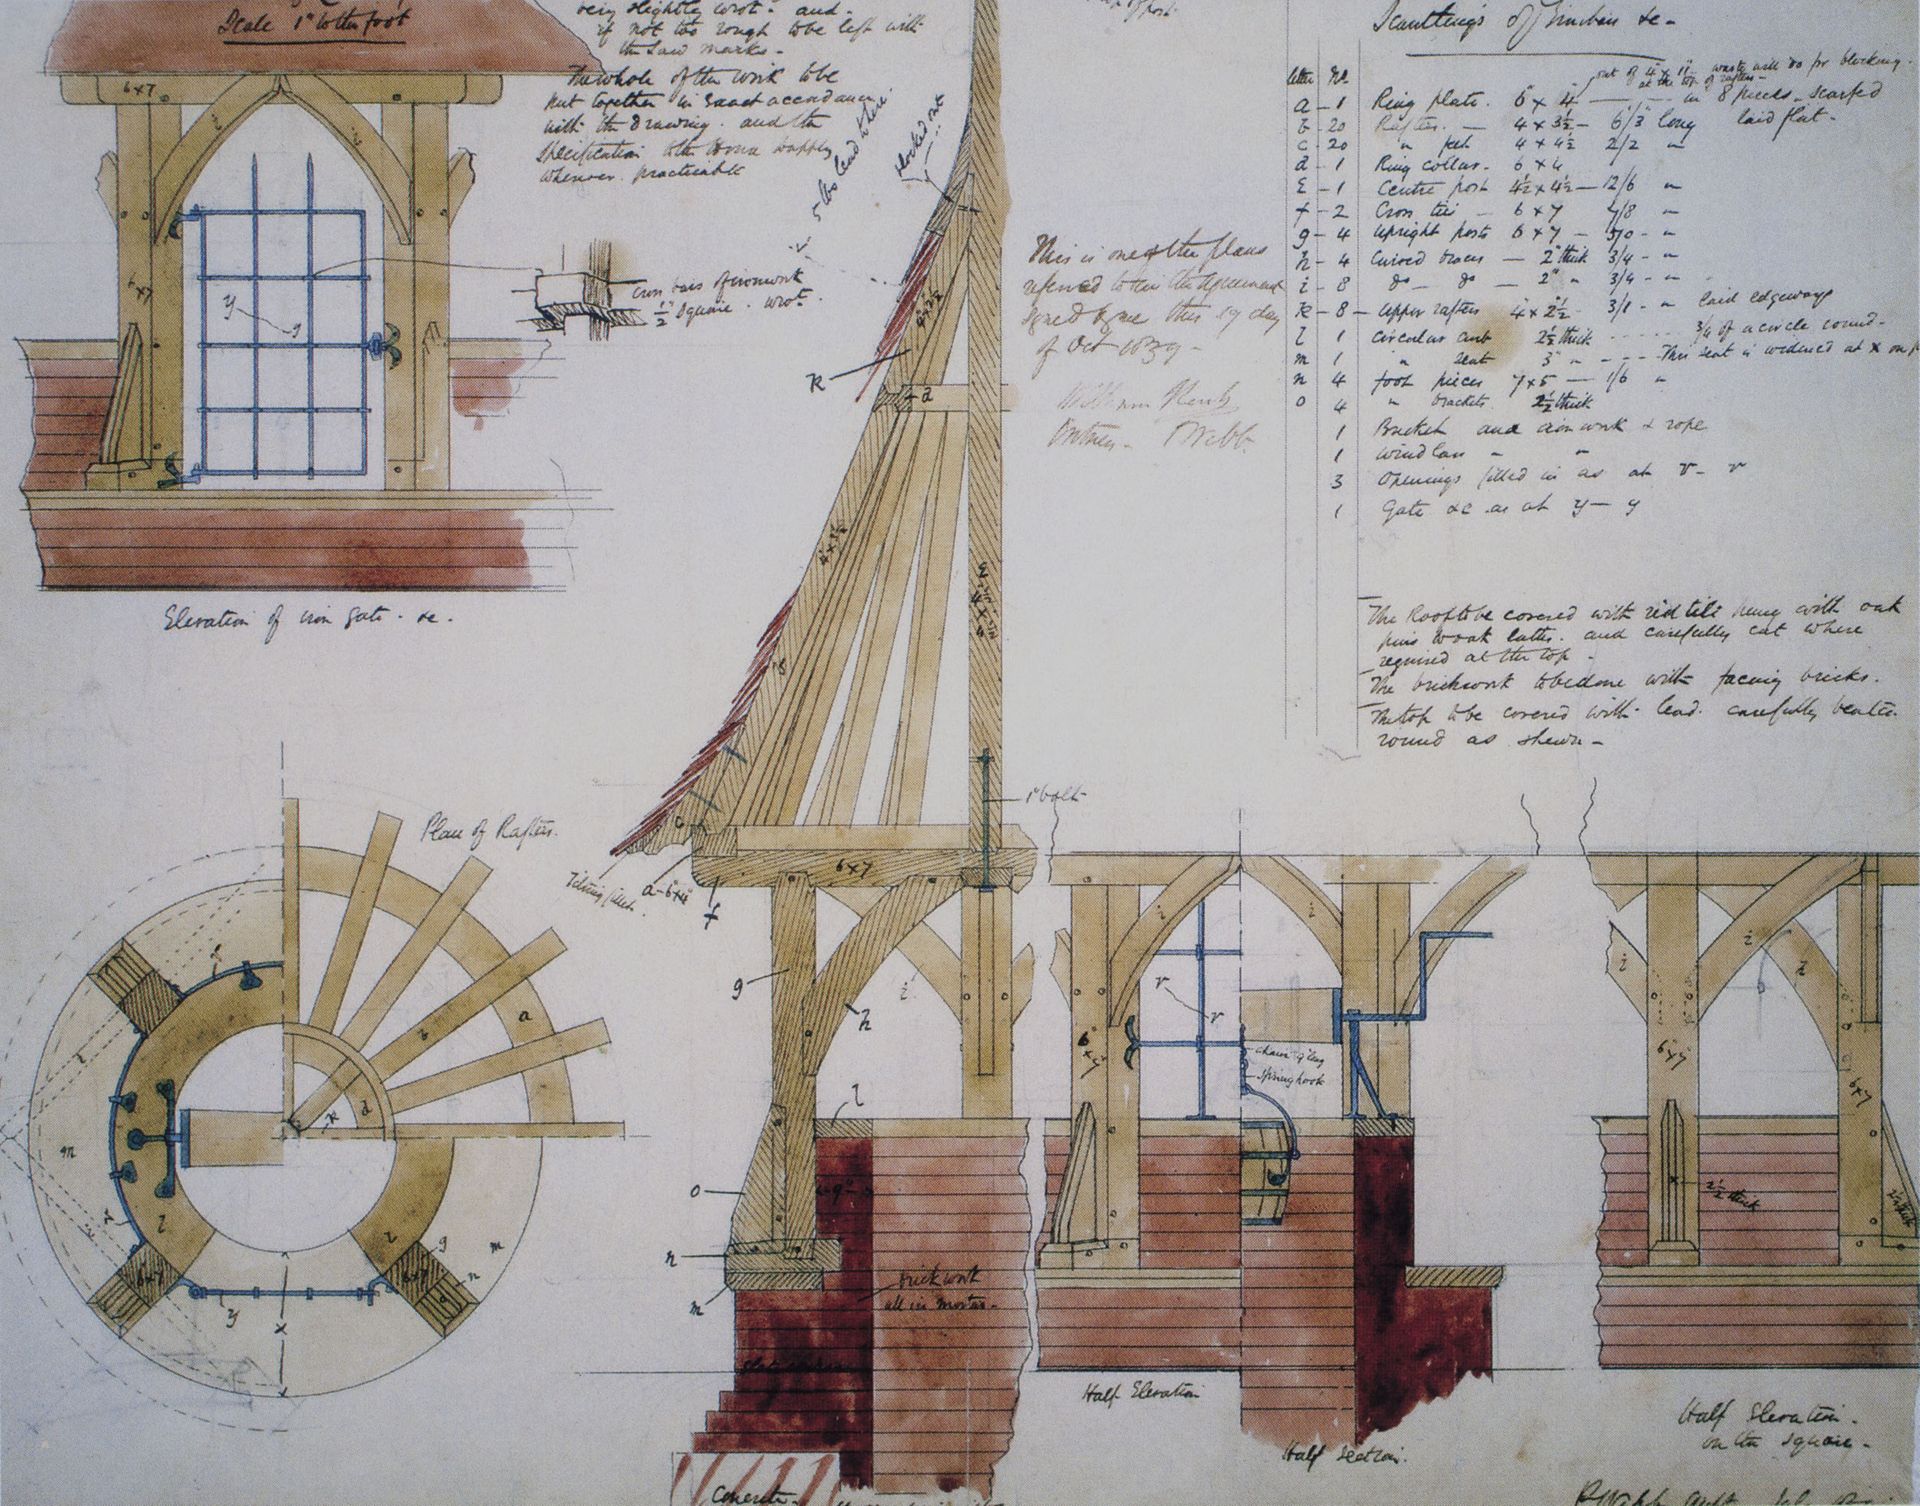 Scale 1" to the foot
being slightly wrot - and -
if not too rough to be left with
the saw marks -
The whole of the work to be
put together in exact accordance
with the drawing. and the
specification
wherever practicable
of post.
5 lbs lead here
6 x 7
i
i
6 x 7
y
y
Cross bars of ironwork
½" square. wrot.
Elevation of iron gate - &c.
Scantlings of Timbers &c -
letter No
out of 4" x 11" waste will do for blocking.
at the top of rafters -
a - 1 Ring plate. 6" x 4" in 8 pieces - scarfed
b - 20 Rafters. — 4 x 3½ — 6/3" long laid flat -
c - 20 " feet 4 x 4½ 2/2 "
d - 1 Ring collar - 6 x 4
E - 1 Centre post 4½ x 4½ — 12/6 "
f - 2 Cross ties — 6 x 7 7/8 "
g - 4 Upright posts 6 x 7 — 5/0 - "
h - 4 Curved braces — 2" thick 3/4 - "
i - 8 do - do — 2" " 3/4 - "
k - 8 - Upper rafters 4 x 2½ - 3/1 - " laid edgeways
l 1 Circular curb 2½ thick - - - - - 3/4 of a circle round -
m 1 " seat 3" " - - - - This seat is widened at x on
n 4 foot pieces 7 x 5 — 1/6 "
o 4 " brackets 2½ thick
1 Bucket and iron work & rope
1 Windlass " "
3 Openings filled in as at r - r
1 Gate &c as at y - y
This is one of the plans
referred to in the Agreement
signed by me this 19 day
of Oct 1859 -
William Kent
Witness - P Webb.
The Roof to be covered with red tile hung with oak
pins to oak laths. and carefully cut where
required at the top -
The brickwork to be done with facing bricks.
The top to be covered with lead. carefully beaten
round as shewn -
k
d
4" x 3½"
E
4½ x 4½
b
c
1" bolt
Tilting fillet.
a - 6" x 4"
f
6 x 7
g
h
i
l
9"
o
n
m
brickwork
all in mortar -
Concrete -
Plan of Rafters.
a
b
d
k
r
m
l
r
l
g
m
n
o
6 x 7
6 x 7
y
x
i
i
i
r
r
6" x 7"
chain 9" long
spring hook
Half Elevation
Half section.
i
i
h
6" x 7"
6 x 7
x
2½ thick
2½ thick
Half Elevation -
on the square -